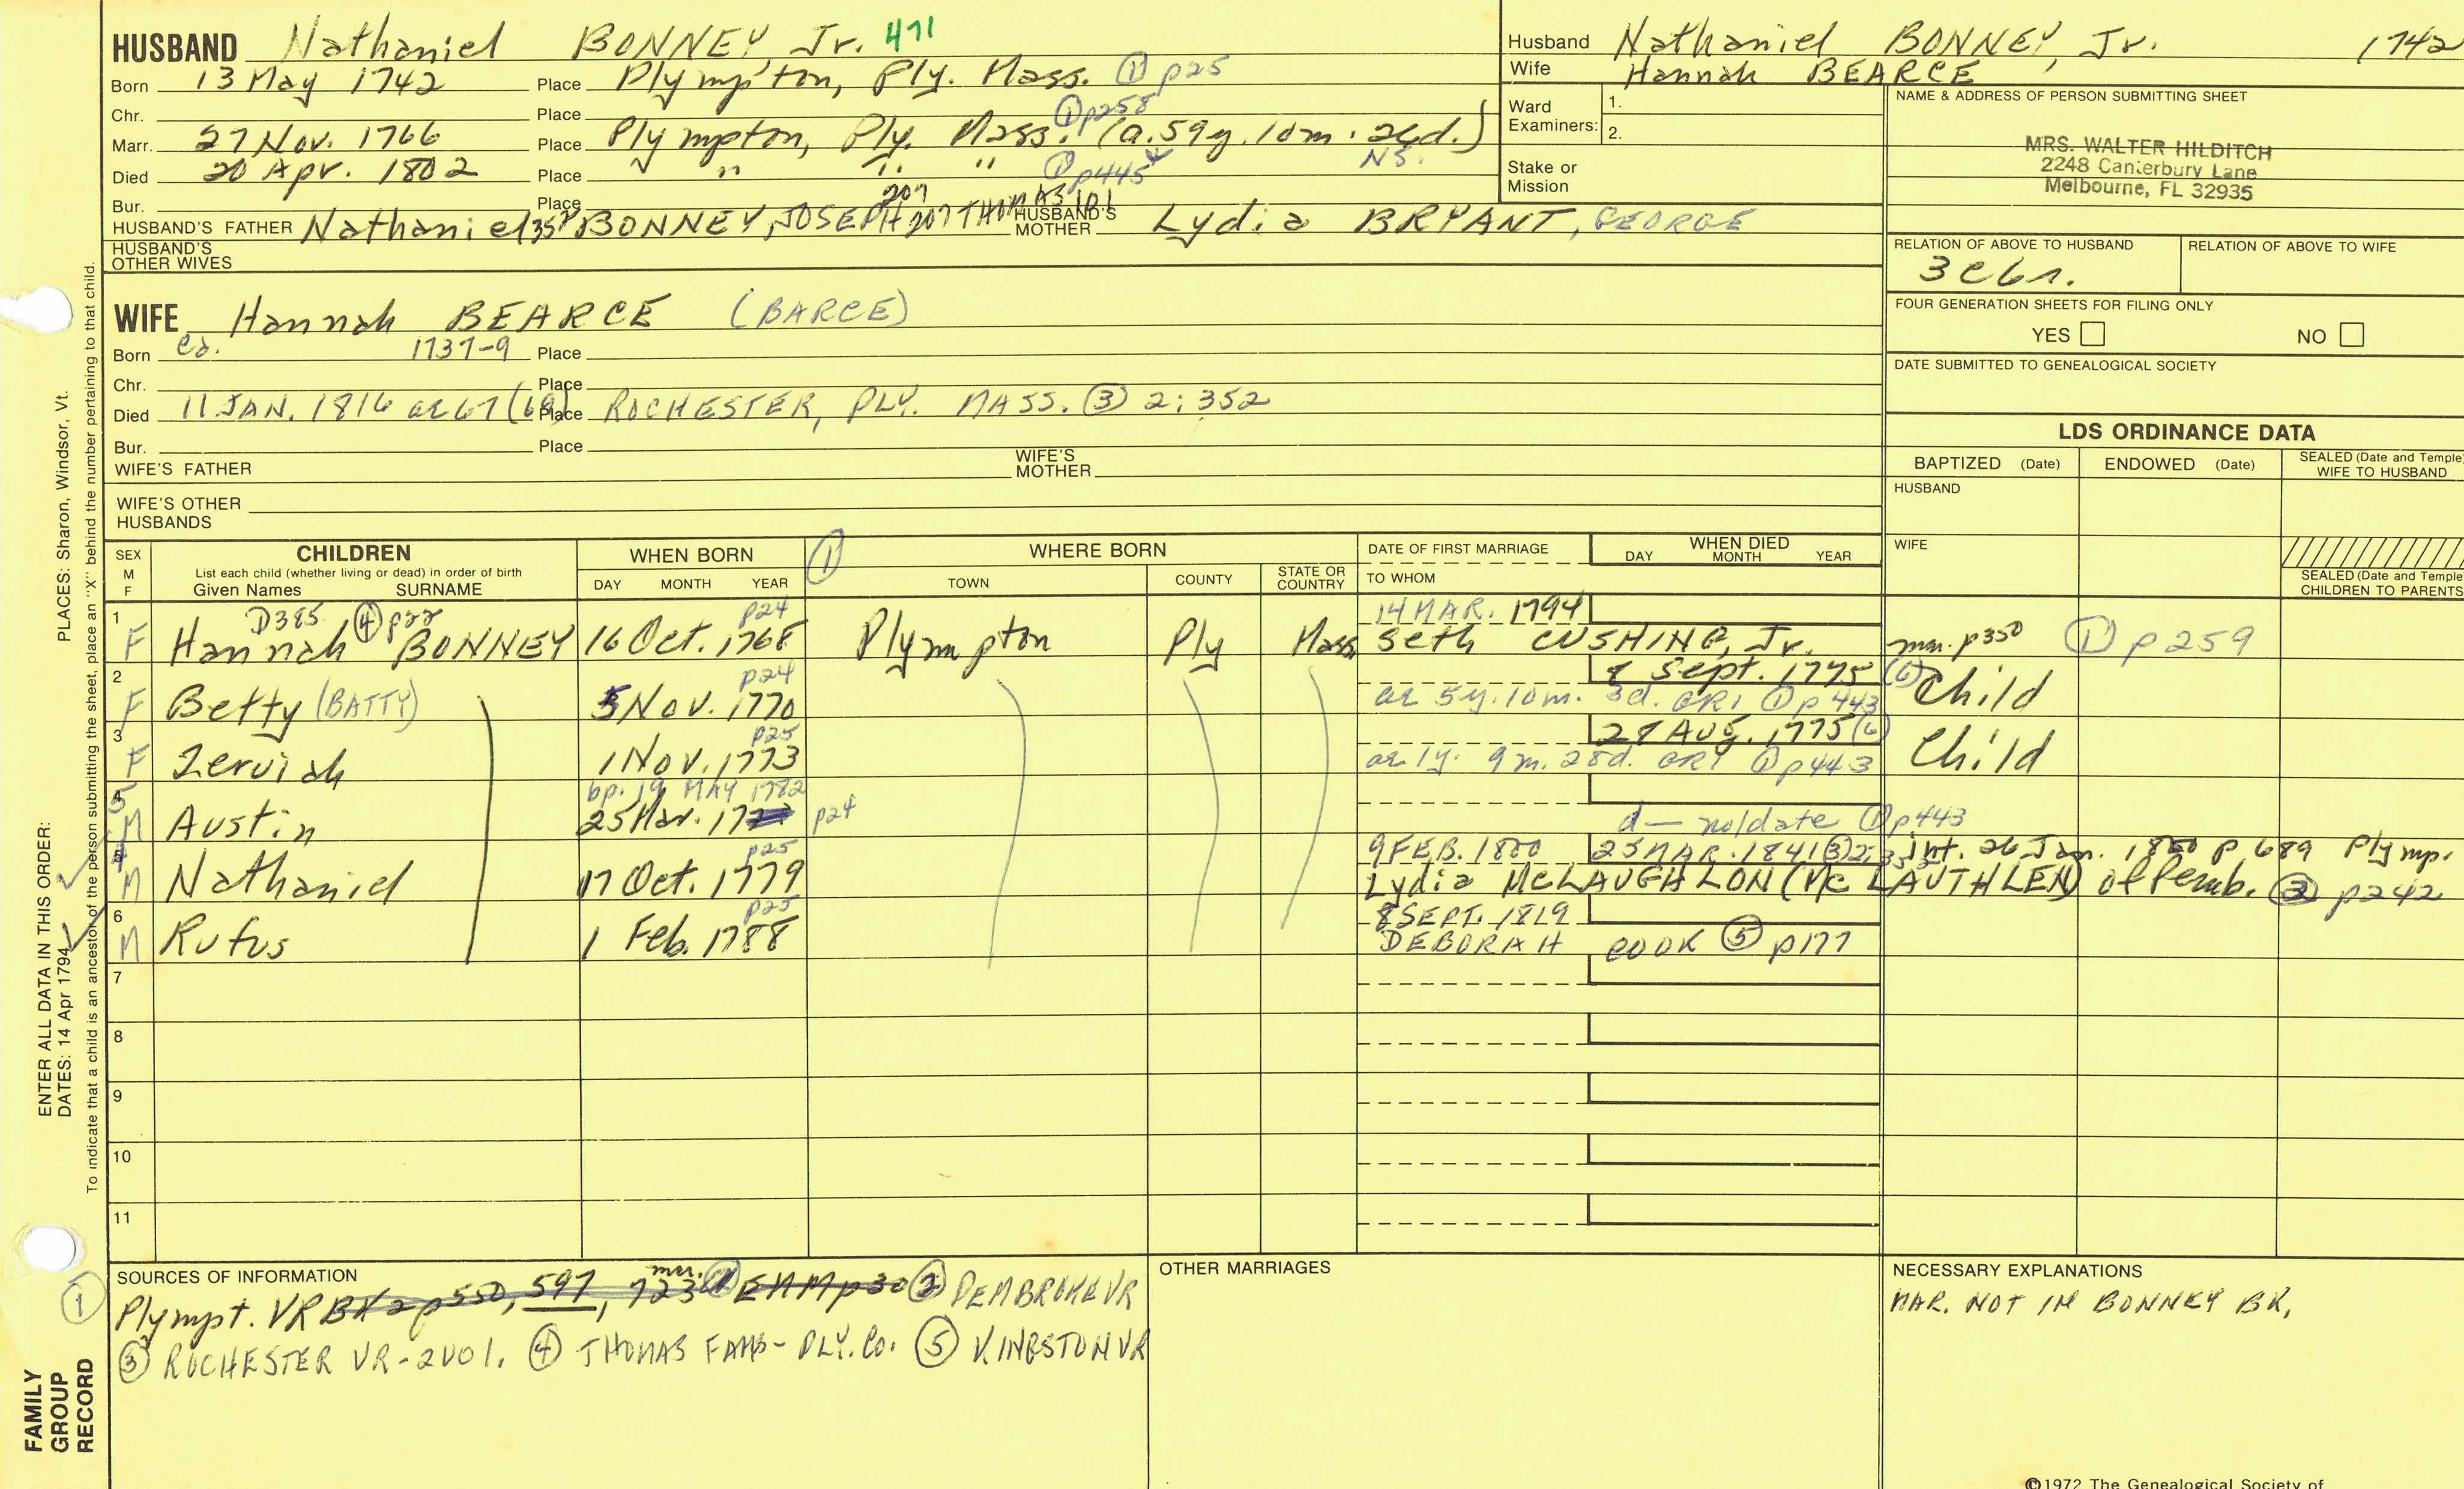 HUSBAND Nathaniel BONNEY, Jr. 471
Born 13 May 1742 Place Plympton, Ply. Mass. ① p25
Chr. Place ① p258
Marr. 27 Nov. 1766 Place Plympton, Ply. Mass. (a. 59y. 10m. 26d.)
Died 20 Apr. 1802 Place " " " ① p445 NS.
Bur. Place
HUSBAND'S FATHER Nathaniel BONNEY, JOSEPH 207 THOMAS 101 HUSBAND'S MOTHER Lydia BRYANT, GEORGE
HUSBAND'S OTHER WIVES
WIFE Hannah BEARCE (BARCE)
Born ca. 1737-9 Place
Chr. Place
Died 11 JAN. 1816 ae 67 (69) Place ROCHESTER, PLY. MASS. ③ 2:352
Bur. Place
WIFE'S FATHER WIFE'S MOTHER
WIFE'S OTHER HUSBANDS
Husband Nathaniel BONNEY, Jr. 1742
Wife Hannah BEARCE
Ward Examiners: 1.
2.
Stake or Mission
NAME & ADDRESS OF PERSON SUBMITTING SHEET
MRS. WALTER HILDITCH
2248 Canterbury Lane
Melbourne, FL 32935
RELATION OF ABOVE TO HUSBAND RELATION OF ABOVE TO WIFE
FOUR GENERATION SHEETS FOR FILING ONLY
YES NO
DATE SUBMITTED TO GENEALOGICAL SOCIETY
LDS ORDINANCE DATA
BAPTIZED (Date) ENDOWED (Date) SEALED (Date and Temple) WIFE TO HUSBAND
HUSBAND
WIFE
SEALED (Date and Temple) CHILDREN TO PARENTS
SEX M F
CHILDREN
List each child (whether living or dead) in order of birth
Given Names SURNAME
WHEN BORN
DAY MONTH YEAR
① WHERE BORN
TOWN COUNTY STATE OR COUNTRY
DATE OF FIRST MARRIAGE
TO WHOM
WHEN DIED
DAY MONTH YEAR
1 D385 ④ p22 p24 14 MAR. 1794
F Hannah BONNEY 16 Oct. 1768 Plympton Ply Mass. Seth CUSHING, Jr. mar. p350 ① p259
2 p24 8 Sept. 1775 (6)
F Betty (BATTY) 5 Nov. 1770 ae 5y. 10m. 3d. GR1 ① p443 Child
3 p25 28 AUG. 1775 (6)
F Zeruiah 1 Nov. 1773 ae 1y. 9m. 28d. GR1 ① p443 Child
5 bp. 19 MAY 1782
M Austin 25 Mar. 17 p24 d — no/date ① p443
4 p25 9 FEB. 1800 25 MAR. 1841 ③ int. 26 Jan. 1800 p 689 Plymp.
M Nathaniel 17 Oct. 1779 Lydia McLAUGHLON (McLAUTHLEN) of Pemb. ② p242
6 p25 8 SEPT. 1819
M Rufus 1 Feb. 1788 DEBORAH COOK ⑤ p177
7
8
9
10
11
SOURCES OF INFORMATION
① Plympt. VR BK 2 p550, 597, 723 mar. p30 ② PEMBROKE VR
③ ROCHESTER VR-2 VOL. ④ THOMAS FAMS-PLY. Co. ⑤ KINGSTON VR
OTHER MARRIAGES
NECESSARY EXPLANATIONS
MAR. NOT IN BONNEY BK.
©1972 The Genealogical Society of
ENTER ALL DATA IN THIS ORDER:
DATES: 14 Apr 1794
PLACES: Sharon, Windsor, Vt.
To indicate that a child is an ancestor of the person submitting the sheet, place an "X" behind the number pertaining to that child.
FAMILY
GROUP
RECORD